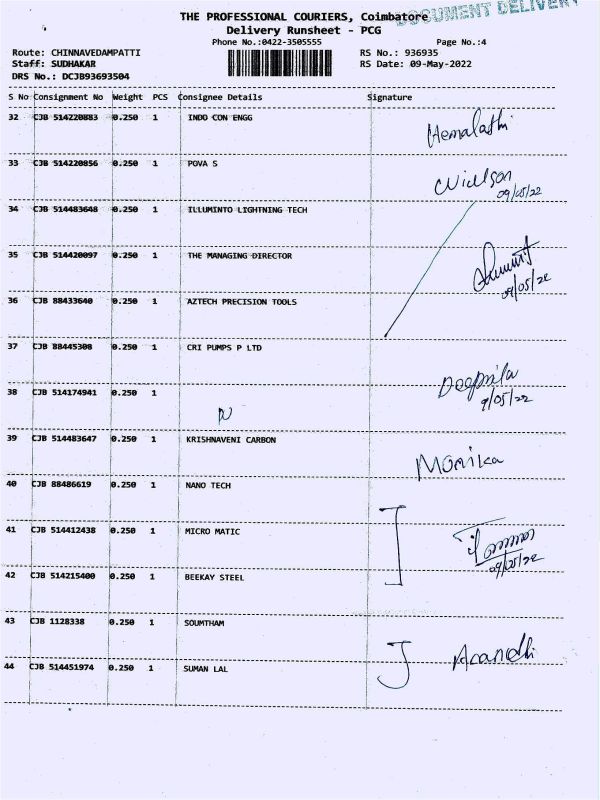 DOCUMENT DELIVERY
THE PROFESSIONAL COURIERS, Coimbatore
Delivery Runsheet - PCG
Phone No.:0422-3505555 Page No.:4
Route: CHINNAVEDAMPATTI RS No.: 936935
Staff: SUDHAKAR RS Date: 09-May-2022
DRS No.: DCJB93693504
S No Consignment No Weight PCS Consignee Details Signature
32 CJB 514220883 0.250 1 INDO CON ENGG
Hemalathi
33 CJB 514220856 0.250 1 POVA S
09/05/22
34 CJB 514483648 0.250 1 ILLUMINTO LIGHTNING TECH
35 CJB 514420097 0.250 1 THE MANAGING DIRECTOR
09/05/22
36 CJB 88433640 0.250 1 AZTECH PRECISION TOOLS
37 CJB 88445308 0.250 1 CRI PUMPS P LTD
38 CJB 514174941 0.250 1
9/05/22
39 CJB 514483647 0.250 1 KRISHNAVENI CARBON
Monika
40 CJB 88486619 0.250 1 NANO TECH
41 CJB 514412438 0.250 1 MICRO MATIC
09/05/22
42 CJB 514215400 0.250 1 BEEKAY STEEL
43 CJB 1128338 0.250 1 SOUMTHAM
44 CJB 514451974 0.250 1 SUMAN LAL